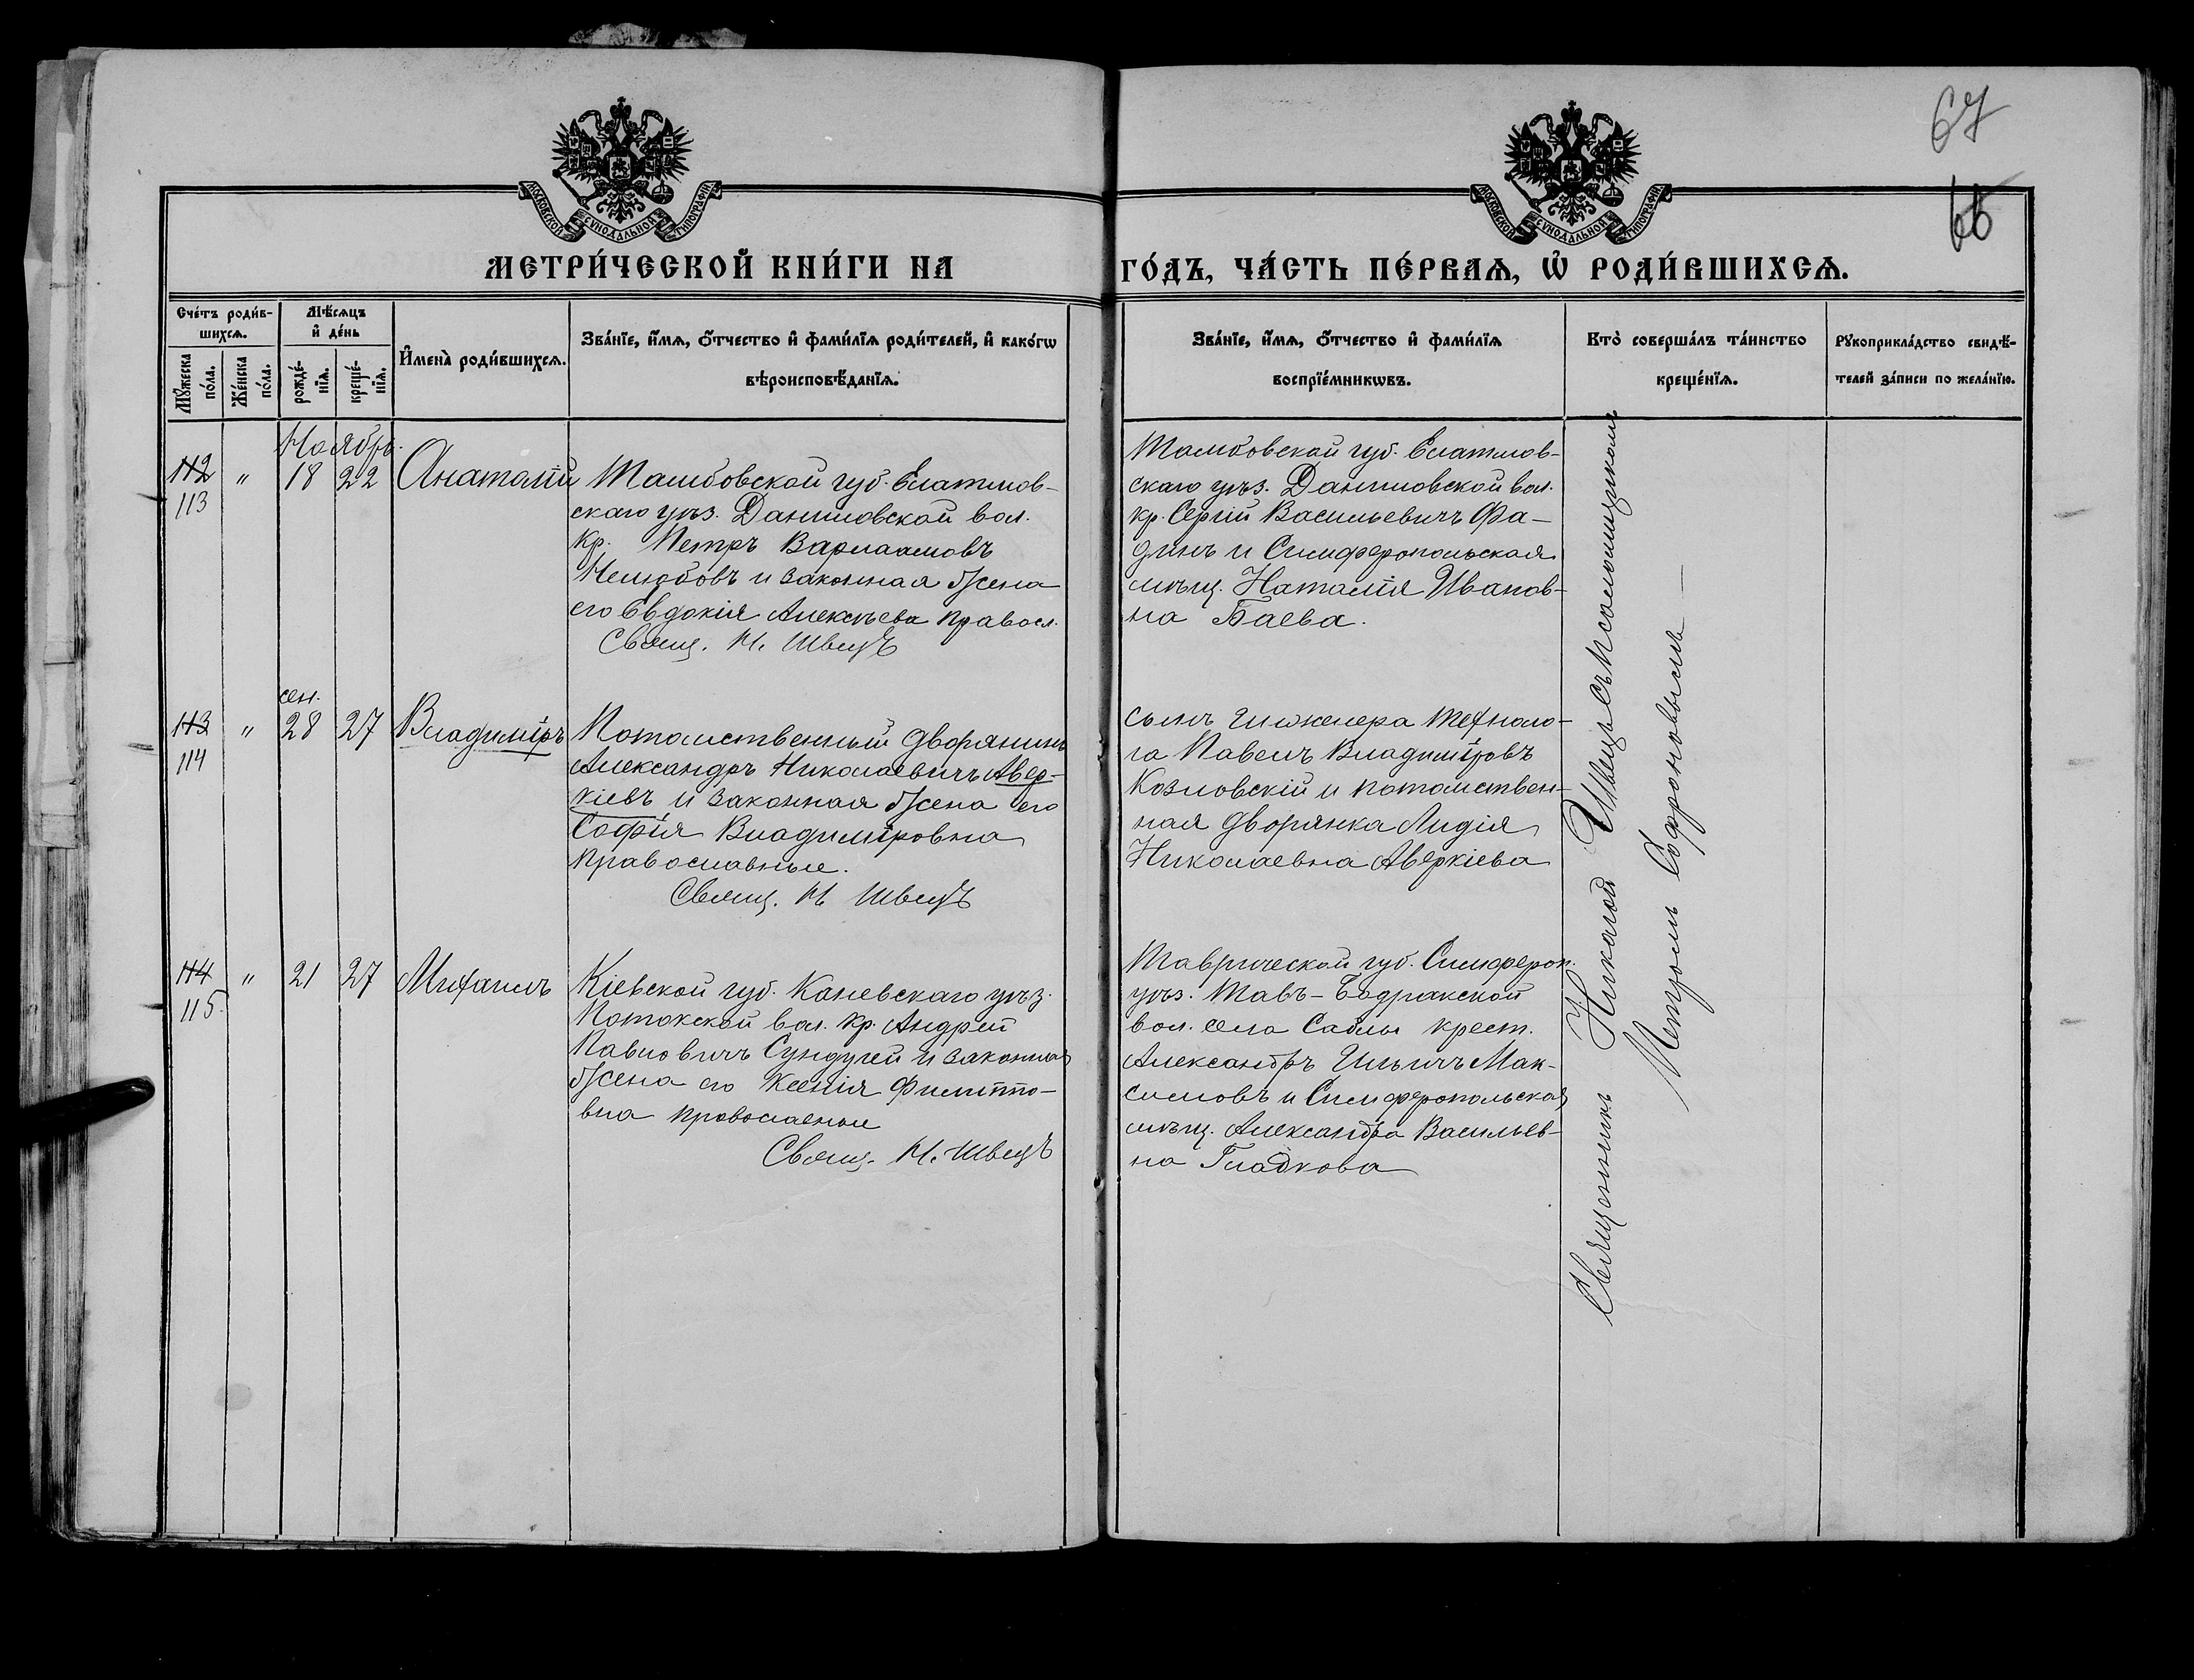 67
66
МОСКОВСКОЙ СѴНОДАЛЬНОЙ ТИПОГРАФІИ
МОСКОВСКОЙ СѴНОДАЛЬНОЙ ТИПОГРАФІИ
МЕТРИ́ЧЕСКОЙ КНИ́ГИ НА
ГО́ДЪ, ЧА́СТЬ ПЕ́РВАѦ, Ѡ҆ РОДИ́ВШИХСѦ.
Сче́тъ роди́в-
шихсѧ.
Мꙋ́жеска
по́ла.
Же́нска
по́ла.
Мѣ́сѧцъ
и҆ де́нь
рожде́-
нїѧ.
креще́-
нїѧ.
И҆мена̀ роди́вшихсѧ.
Зва́нїе, и҆́мѧ, ѻ҆́тчество и҆ фами́лїѧ роди́телей, и҆ како́гѡ
вѣроисповѣ́данїѧ.
Зва́нїе, и҆́мѧ, ѻ҆́тчество и҆ фами́лїѧ
воспрїе́мникѡвъ.
Кто̀ соверша́лъ та́инство
креще́нїѧ.
Рꙋкоприкла́дство свидѣ́-
телей за́писи по жела́нїю.
Ноябрь.
112 " 18 22 Анатолій
113
Тамбовской губ. Елатмов-
скаго уѣз. Даниловской вол.
кр. Петръ Варлаамовъ
и законная жена
его Евдокія Алексѣева правосл.
Свящ. Н. Швецъ
Тамбовской губ. Елатмов-
скаго уѣз. Даниловской вол.
кр. Сергій Васильевичъ Фа-
динъ и Симферопольская
мѣщ. Наталія Иванов-
на Баева.
сен.
113 " 28 27 Владиміръ
114
Потомственный дворянинъ
Александръ Николаевичъ Авер-
кіевъ и законная жена его
Софія Владиміровна
православные.
Свящ. Н. Швецъ
сынъ инженера техноло-
га Павелъ Владиміровъ
Козловскій и потомствен-
ная дворянка Лидія
Николаевна Аверкіева
114 " 21 27 Михаилъ
115.
Кіевской губ. Каневскаго уѣз.
Потокской вол. кр. Андрей
Павловичъ Сундугей и законная
жена его Ксенія Филиппо-
вна православные
Свящ. Н. Швецъ
Таврической губ. Симфероп.
уѣз. Тавъ-Бодракской
вол. села Саблы крест.
Александръ Ильичъ Мак-
симовъ и Симферопольская
мѣщ. Александра Васильев-
на Гладкова
Священникъ Николай Швецъ съ псаломщикомъ
Софроновымъ